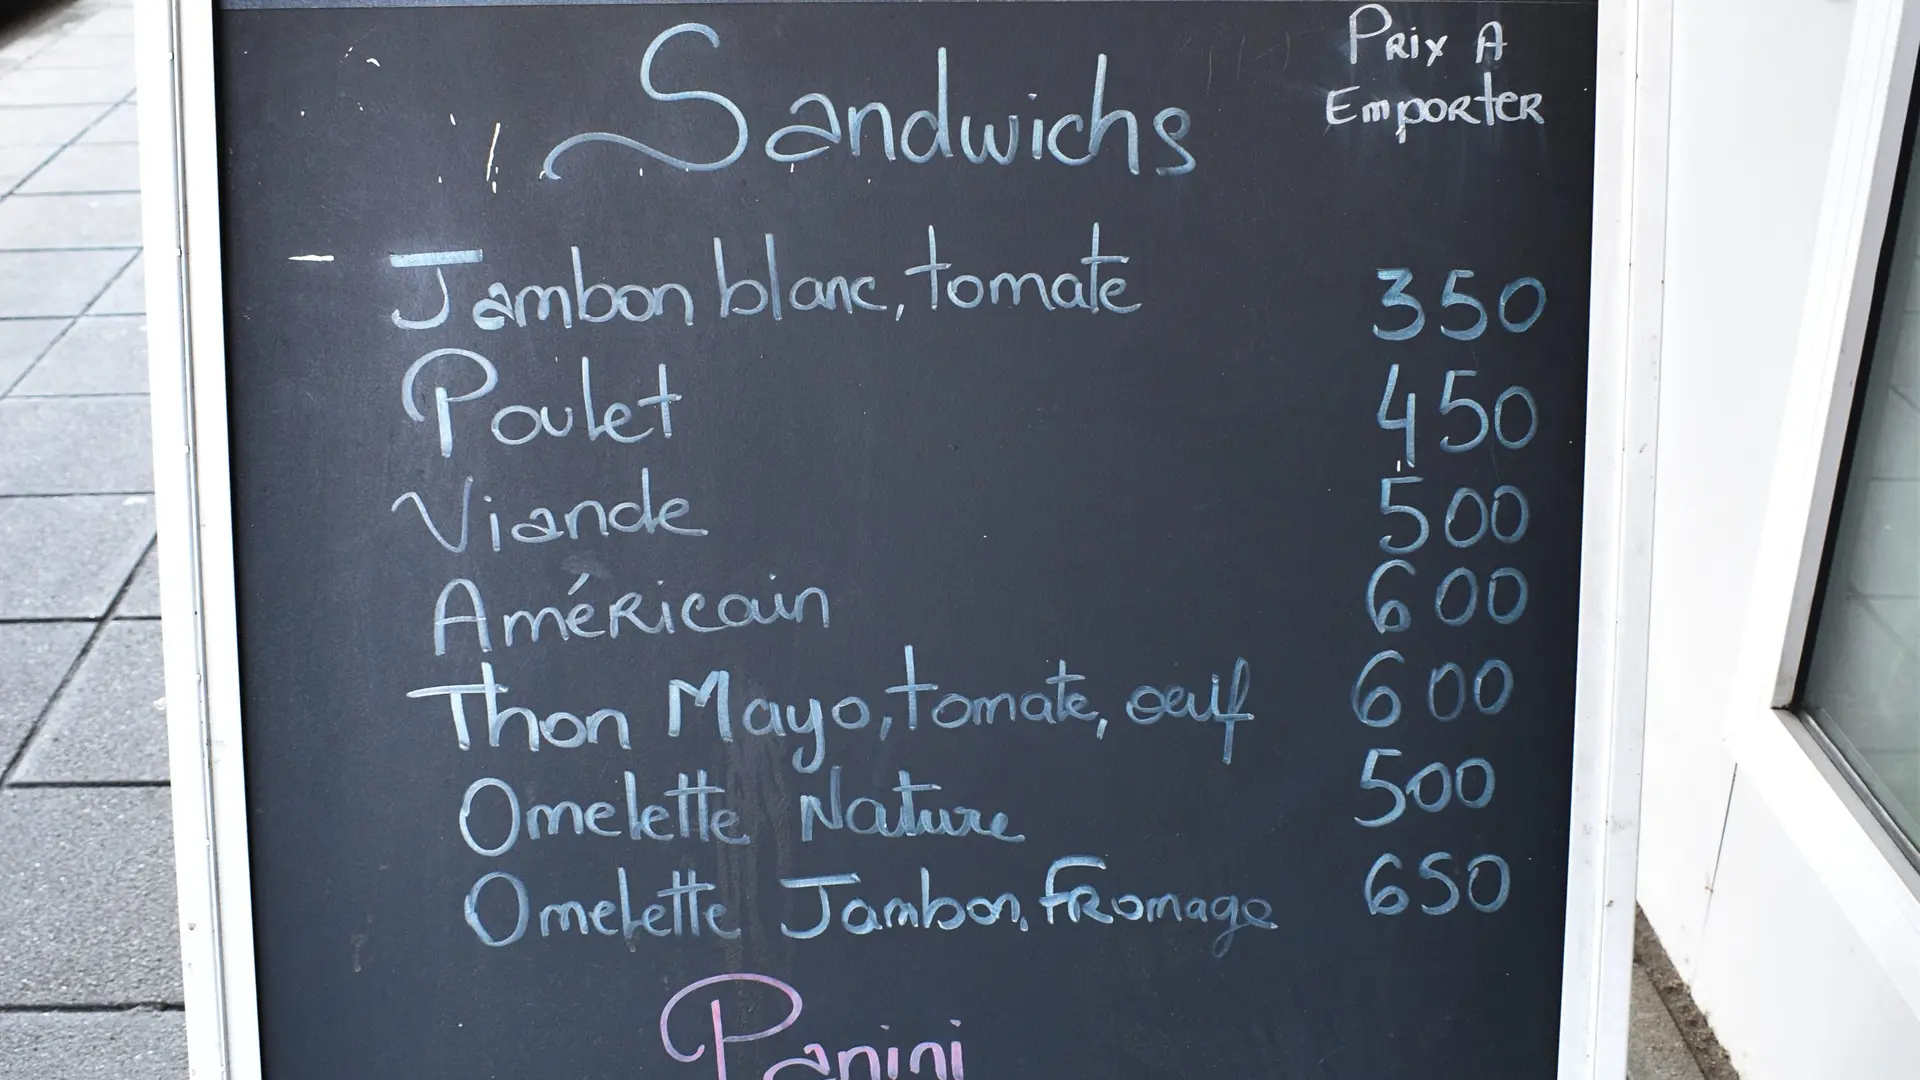 Sandwichs
Prix A
Emporter
Jambon blanc, tomate 350
Poulet 450
Viande 500
Américain 600
Thon Mayo, tomate, oeuf 600
Omelette Nature 500
Omelette Jambon, Fromage 650
Panini